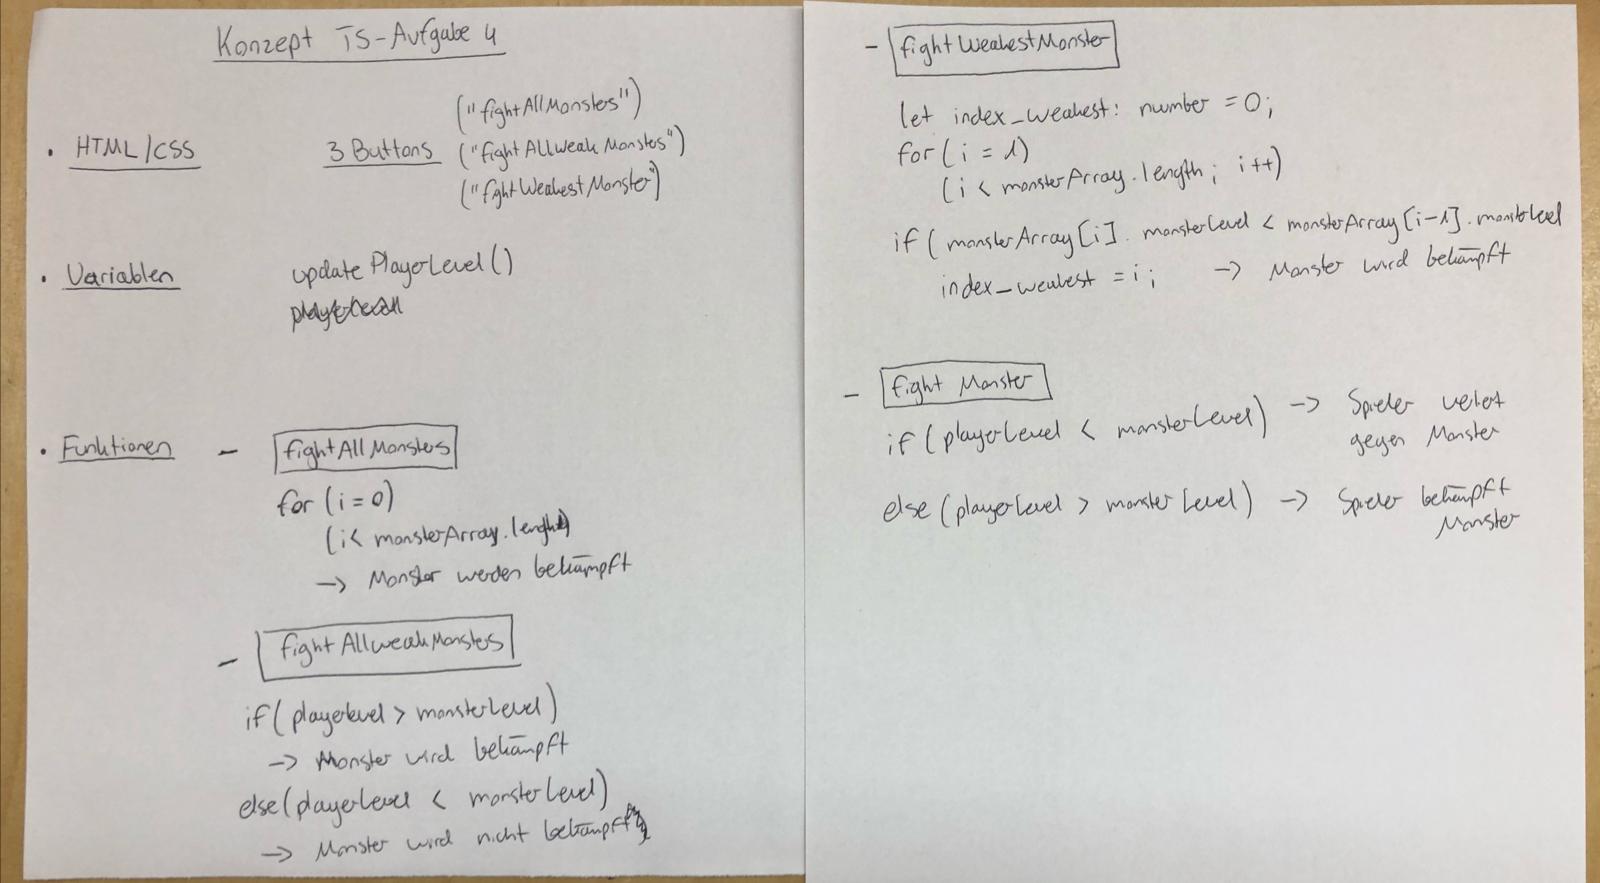 Konzept TS-Aufgabe 4
• HTML/CSS 3 Buttons ("fightAllMonsters")
("fightAllweakMonstes")
("fightWeakestMonster")
• Variablen updatePlayerLevel()
• Funktionen - fightAllMonsters
for (i = 0)
(i < monsterArray.lenght)
-> Monster werden bekämpft
- fightAllweakMonsters
if (playerlevel > monsterLevel)
-> Monster wird bekämpft
else (playerLevel < monsterLevel)
-> Monster wird nicht bekämpft
- fightWeakestMonster
let index_weakest: number = 0;
for (i = 1)
(i < monsterArray.length; i++)
if (monsterArray[i].monsterLevel < monsterArray[i-1].monsterLevel
index_weakest = i; -> Monster wird bekämpft
- fight Monster
if (playerLevel < monsterLevel) -> Spieler verliert
gegen Monster
else (playerLevel > monsterLevel) -> Spieler bekämpft
Monster